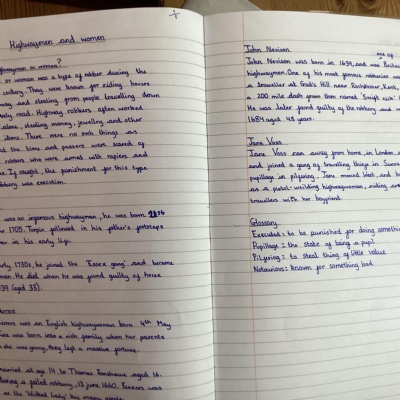 Highwaymen and women
highwayman or woman?
or woman was a type of robber during the
century. They were known for riding horses
away and stealing from people travelling down
road. Highway robbers often worked
alone, stealing money, jewellery and other
items. There were no such things as
at the time and passers were scared of
robbers who were armed with rapiers and
If caught, the punishment for this type
robbery was execution.
was an infamous highwayman, he was born 21st
1705. Turpin followed in his father's footsteps
in his early life.
early 1730s, he joined the 'Essex gang' and became
man. He died when he was found guilty of horse
1739 (aged 33).
was an English highwaywoman born 4th May
was born into a rich family when her parents
she was young, they left a massive fortune.
married at age 14 to Thomas Fanshawe aged 16.
during a failed robbery, 13 june 1660. Ferrers was
as the 'Wicked Lady' by many people
John Nevison
John Nevison was born in 1639, and was Britain's one of
highwayman. One of his most famous robberies was
a traveller at Gad's Hill near Rochester, Kent,
a 200 mile dash from then named 'Swift nick'
He was later found guilty of the robbery and
1684 aged 45 years.
Jane Voss
Jane Voss ran away from home in London,
and joined a gang of travelling thieves in
pupillage in pilfering, Jane moved West, and
as a pistol-wielding highwaywoman, riding and
travellers with her boyfriend.
Glossary
Executed: to be punished for doing something
Pupillage: the state of being a pupil
Pilfering: to steal thing of little value
Notorious: known for something bad